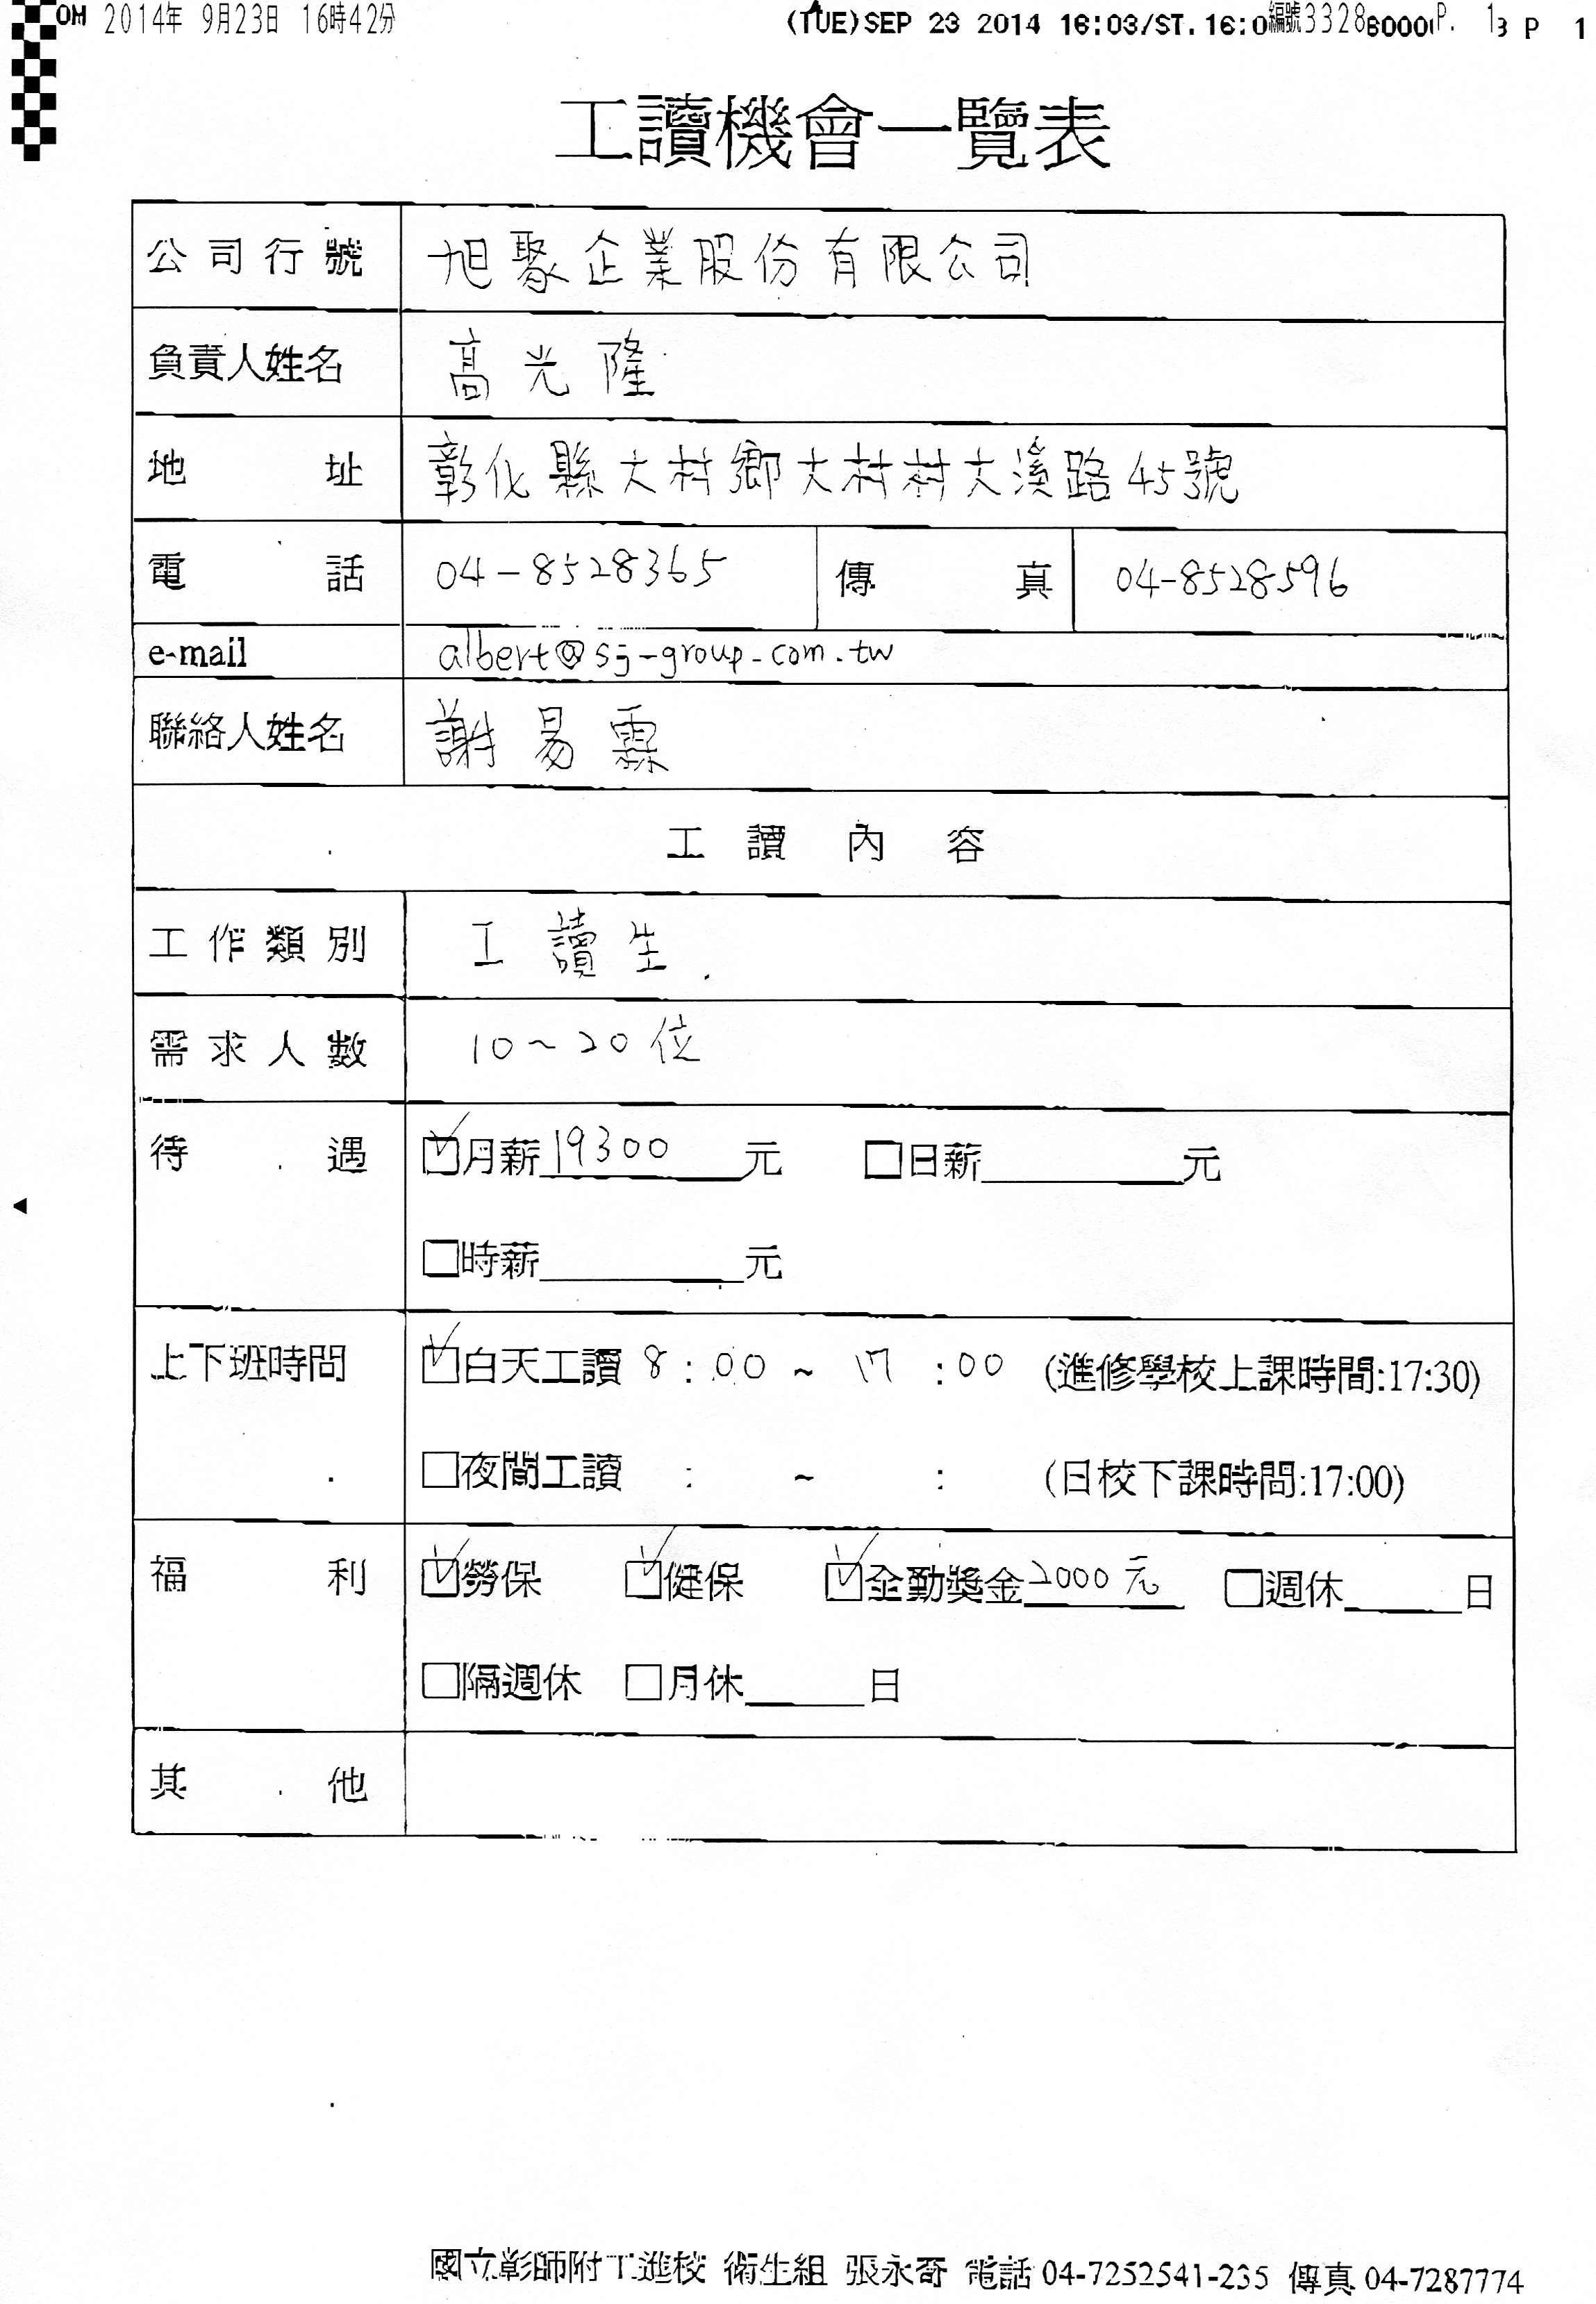 OM 2014年 9月23日 16時42分 (TUE)SEP 23 2014 16:03/ST.16:0 編號3328 60000 P. 1 3 P 1
工讀機會一覽表
公司行號 旭聚企業股份有限公司
負責人姓名 高光隆
地址 彰化縣大村鄉大村村大溪路45號
電話 04-8528365 傳真 04-8528596
e-mail albert@sj-group.com.tw
聯絡人姓名 謝易霖
工讀內容
工作類別 工讀生.
需求人數 10~20位
待遇 ☑月薪19300元 □日薪______元
□時薪______元
上下班時間 ☑白天工讀 8:00 ~ 17:00 (進修學校上課時間:17:30)
□夜間工讀 : ~ : (日校下課時間:17:00)
福利 ☑勞保 ☑健保 ☑全勤獎金2000元 □週休____日
□隔週休 □月休____日
其他
國立彰師附工進校 衛生組 張永奇 電話 04-7252541-235 傳真 04-7287774